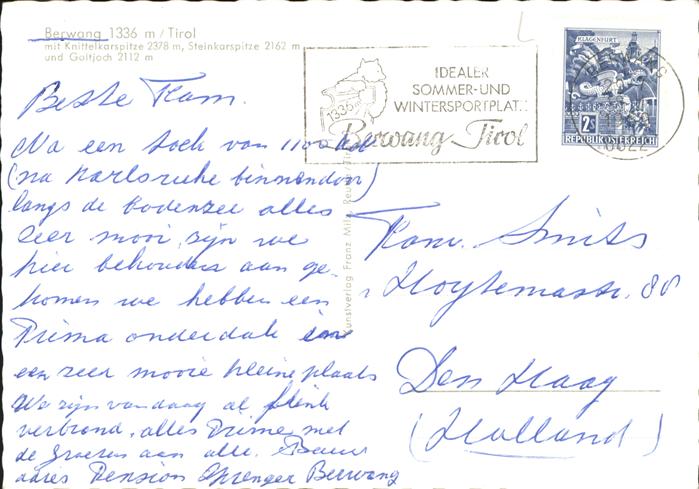 Berwang 1336 m / Tirol
mit Knittelkarspitze 2378 m, Steinkarspitze 2162 m
und Galtjoch 2112 m
KLAGENFURT
2S
REPUBLIK ÖSTERREICH
IDEALER
SOMMER-UND
WINTERSPORTPLATZ
1336m
Berwang Tirol
6622
Beste Fam.
Na een toch van 1100 km
(na Karlsruhe binnendoor)
langs de Bodenzee alles
zeer mooi, zijn we
hier behouden aan ge-
komen we hebben een
Prima onderdak in
een zeer mooie kleine plaats
We zijn vandaag al flink
verbrand, alles Prima, met
de Groeten aan alle.
adres Pension Sprenger Berwang
Kunstverlag Franz Milz, Reutte/Tirol
Fam. Smits
Hoytemastr. 88
Den Haag
(Holland)